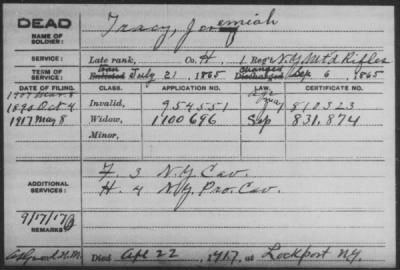 DEAD
NAME OF SOLDIER: Tracy, Jeremiah
SERVICE: Late rank, Co. H, 1 Reg't N.Y. Mt'd Rifles
TERM OF SERVICE: Tran Enlisted July 21, 1865 Changed Discharged Sep 6, 1865
DATE OF FILING. CLASS. APPLICATION NO. LAW. CERTIFICATE NO.
1907 Mar. 8
1890 Oct 4 Invalid, 954551 810323
1917 May 8 Widow, 1100696 Sep 831,874
Minor,
ADDITIONAL SERVICES: F. 3 N.Y. Cav.
H. 4 N.Y. Pro. Cav.
9/17/17
REMARKS:
Died Apl 22, 1917, at Lockport N.Y.